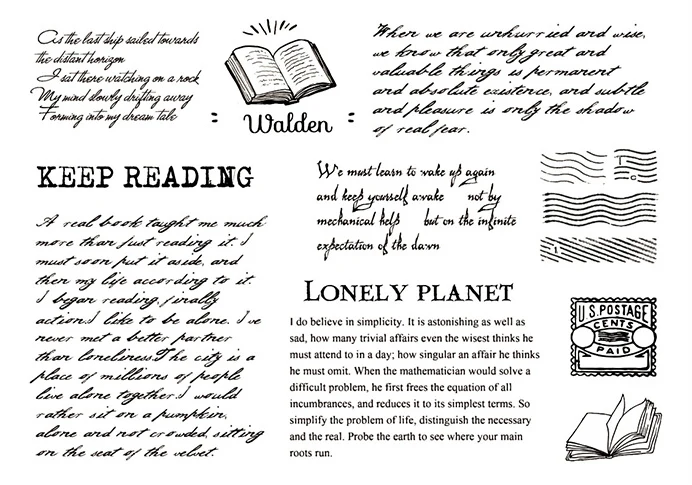 As the last ship sailed towards
the distant horizon
I sat there watching on a rock
My mind slowly drifting away
Forming into my dream tale
Walden
When we are unhurried and wise,
we know that only great and
valuable things is permanent
and absolute existence, and subtle
and pleasure is only the shadow
of real fear.
KEEP READING
A real book taught me much
more than just reading it. I
must soon put it aside, and
then my life according to it.
I began reading, finally
action.I like to be alone. I've
never met a better partner
than loneliness.The city is a
place of millions of people
live alone together.I would
rather sit on a pumpkin,
alone and not crowded, sitting
on the seat of the velvet.
We must learn to wake up again
and keep yourself awake not by
mechanical help but on the infinite
expectation of the dawn
LONELY PLANET
I do believe in simplicity. It is astonishing as well as
sad, how many trivial affairs even the wisest thinks he
must attend to in a day; how singular an affair he thinks
he must omit. When the mathematician would solve a
difficult problem, he first frees the equation of all
incumbrances, and reduces it to its simplest terms. So
simplify the problem of life, distinguish the necessary
and the real. Probe the earth to see where your main
roots run.
U.S. POSTAGE
CENTS
PAID